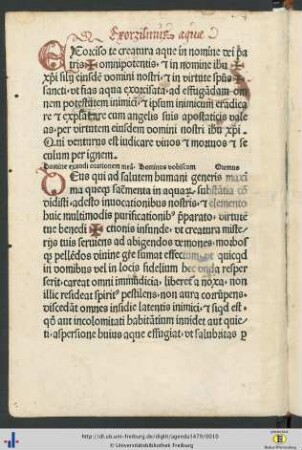 Exorzismus aque
EXorciso te creatura aque in nomine dei pa
tris ✠ omnipotentis ⁊ in nomine ihu ✠
xpi filij eiusdē domini nostri ⁊ in virtute spūs ✠
sancti vt fias aqua exorcisata ad effugādam om
nem potestatem inimici ⁊ ipsum inimicum eradica
re ⁊ explātare cum angelis suis apostaticis vale
as per virtutem eiusdem domini nostri ihu xpi.
Qui venturus est iudicare viuos ⁊ mortuos ⁊ se
culum per ignem.
Domine exaudi orationem meā. Dominus vobiscum Oremus
DEus qui ad salutem humani generis maxi
ma queqꝫ sac̄menta in aquaꝝ substātia cō
didisti adesto inuocationibus nostris ⁊ elemento
huic multimodis purificationibꝰ p̄parato virtutē
tue benedi ✠ ctionis infunde vt creatura miste
rijs tuis seruiens ad abigendos demones morbos
qꝫ pellēdos diuine gr̄e sumat effectum vt quicqd
in domibus vel in locis fidelium hec vnda resper
serit careat omni immūdicia liberet a noxa non
illic resideat spiritꝰ pestilens non aura corrūpens
discedāt omnes insidie latentis inimici ⁊ siqd est
qd aut incolomitati habitātium inuidet aut quie
ti aspersione huius aque effugiat vt salubritas p
http://dl.ub.uni-freiburg.de/diglit/agenda1479/0010
© Universitätsbibliothek Freiburg